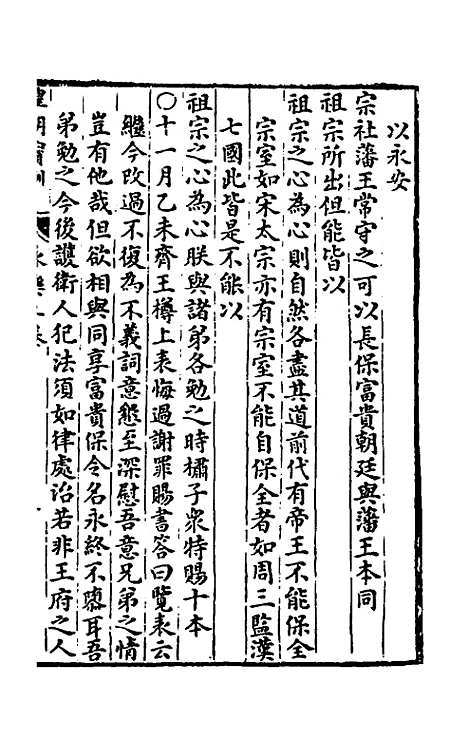 以永安
宗社藩王常守之可以長保富貴朝廷與藩王本同
祖宗所出但能皆以
祖宗之心為心則自然各盡其道前代有帝王不能保全
宗室如宋太宗亦有宗室不能自保全者如周三監漢
七國此皆是不能以
祖宗之心為心朕與諸弟各勉之時橘子衆特賜十本
○十一月乙未齊王榑上表悔過謝罪賜書答曰覽表云
繼今改過不復為不義詞意懇至深慰吾意兄弟之情
豈有他哉但欲相與同享富貴保令名永終不隳耳吾
弟勉之今後護衛人犯法須如律處治若非王府之人
皇明寶訓 永樂二卷